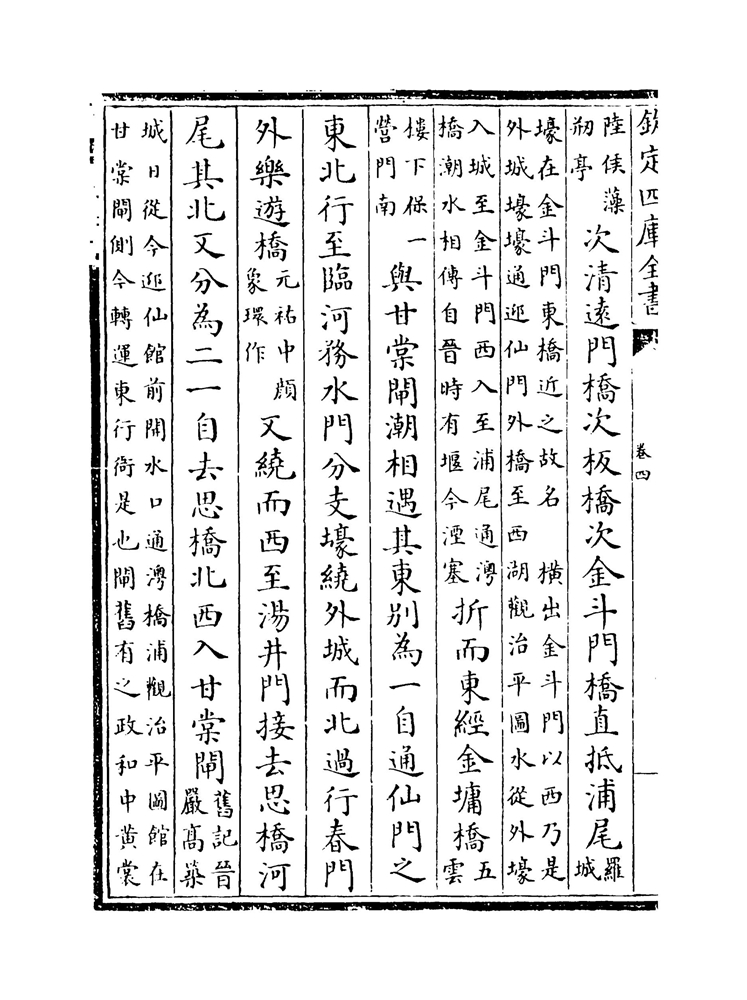 欽定四庫全書
卷四
陸侯藻
刱亭
次清遠門橋次板橋次金斗門橋直抵浦尾
羅
城
壕在金斗門東橋近之故名　横出金斗門以西乃是
外城壕壕通迎仙門外橋至西湖觀治平圖水從外壕
入城至金斗門西入至浦尾通澳
橋潮水相傳自晉時有堰今湮塞
折而東經金墉橋
五
雲
樓下保一
營門南
與甘棠閘潮相遇其東别為一自通仙門之
東北行至臨河務水門分支壕繞外城而北過行春門
外樂遊橋
元祐中顔
象環作
又繞而西至湯井門接去思橋河
尾其北又分為二一自去思橋北西入甘棠閘
舊記晉
嚴髙築
城日從今迎仙館前開水口通澳橋浦觀治平圖館在
甘棠閘側今轉運東行衙是也閘舊有之政和中黄裳